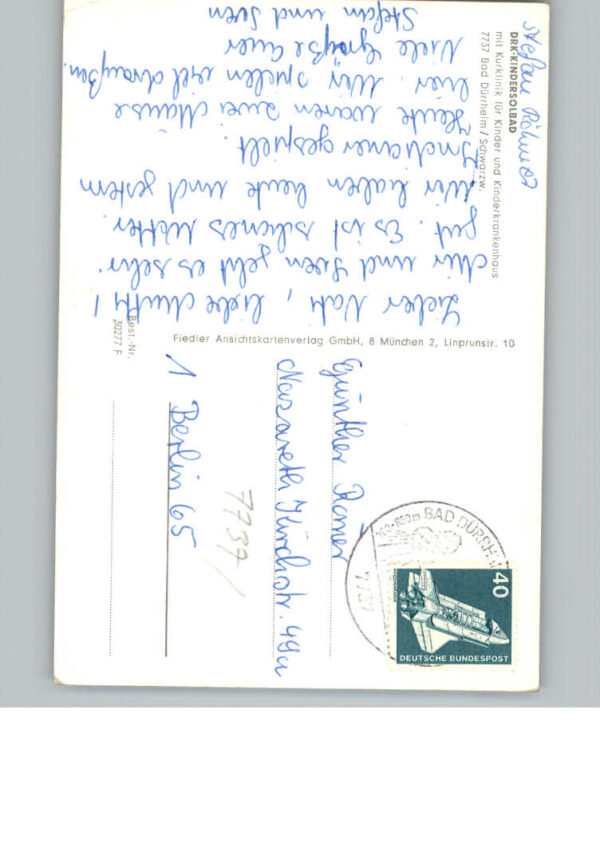 DRK-KINDERSOLBAD
mit Kurklinik für Kinder und Kinderkrankenhaus
7737 Bad Dürrheim / Schwarzw.
Stefan
Lieber Vati, liebe Mutti!
Mir und Sven geht es sehr
gut. Es ist schönes Wetter.
Wir haben heute und gestern
Indianer gespielt.
Heute waren zwei Mäuse
hier. Wir spielen viel draußen.
Viele Grüße Euer
Stefan und Sven
Best.-Nr.
30277 F
Fiedler Ansichtskartenverlag GmbH, 8 München 2, Linprunstr. 10
BAD DÜRRH
7737
40
DEUTSCHE BUNDESPOST
Günther Römer
Nazareth Kirchstr. 49a
1 Berlin 65
7737/